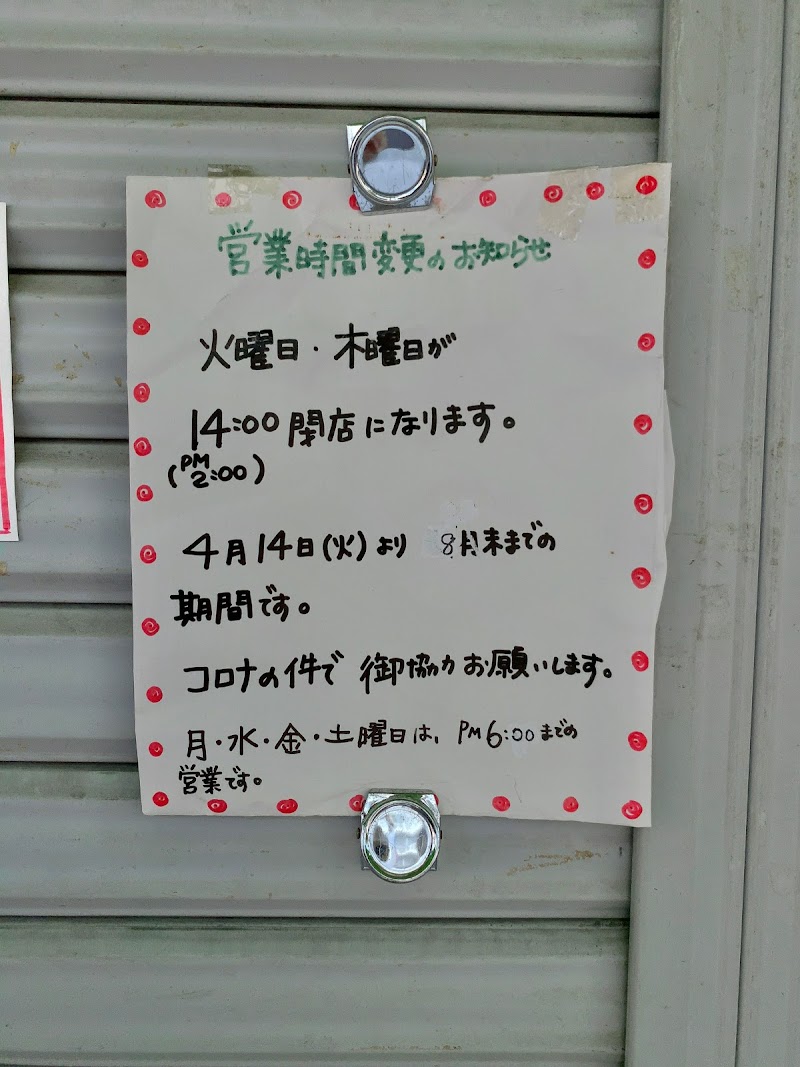 営業時間変更のお知らせ
火曜日・木曜日が
14:00 閉店になります。
(PM 2:00)
4月14日(火)より 8月末までの
期間です。
コロナの件で 御協力お願いします。
月・水・金・土曜日は、PM6:00までの
営業です。